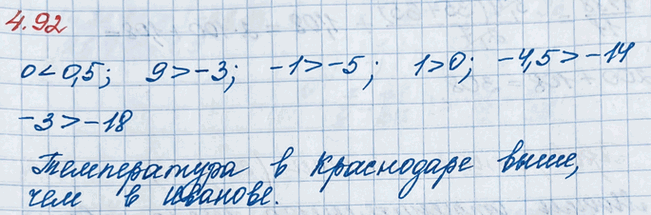 4.92
0 < 0,5; 9 > -3; -1 > -5; 1 > 0; -4,5 > -14
-3 > -18
Температура в Краснодаре выше,
чем в Иванове.